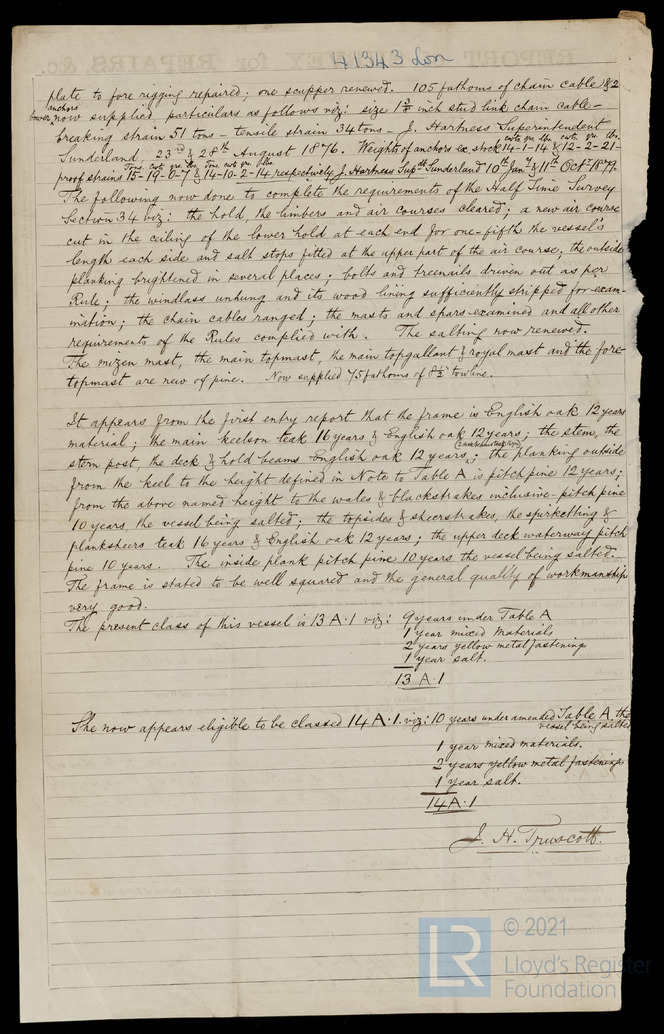 41343 Lon
plate to fore rigging repaired; one scupper renewed. 105 fathoms of chain cable & 2
bower anchors now supplied, particulars as follows viz: size 1 inch stud link chain cable -
breaking strain 51 tons - tensile strain 34 tons - J. Hartness Superintendent
Sunderland 23rd & 28th August 1876. Weight of anchors ex. stock 14-1-14 & 12-2-21-
proof strains 15-19-0-7 & 14-10-2-14 respectively, J. Hartness Supt Sunderland 10th Jany & 11th Octr 1879.
The following now done to complete the requirements of the Half Time Survey
Section 34 viz: the hold, the limbers and air courses cleared; a new air course
cut in the ceiling of the lower hold at each end for one-fifth the vessel's
length each side and salt stops fitted at the upper part of the air course; the outside
planking brightened in several places; bolts and treenails driven out as per
Rule; the windlass unhung and its wood lining sufficiently stripped for exam-
ination; the chain cables ranged; the masts and spars examined and all other
requirements of the Rules complied with. The salting now renewed.
The mizen mast, the main topmast, the main topgallant & royal mast and the fore-
topmast are new of pine. Now supplied 75 fathoms of 8½" towline.
It appears from the first entry report that the frame is English oak 12 years
material; the main keelson teak 16 years & English oak 12 years; the stem, the
stern post, the deck & hold beams English oak 12 years; the planking outside
from the keel to the height defined in Note to Table A is pitch pine 12 years;
from the above named height to the wales & blackstrakes inclusive - pitch pine
10 years the vessel being salted; the topsides & sheerstrakes, the spirketting &
planksheers teak 16 years & English oak 12 years; the upper deck waterway pitch
pine 10 years. The inside plank pitch pine 10 years the vessel being salted.
The frame is stated to be well squared and the general quality of workmanship
very good.
The present class of this vessel is 13 A.1 viz: 9 years under Table A
1 year mixed materials
2 years yellow metal fastenings
1 year salt.
13 A.1
She now appears eligible to be classed 14 A.1. viz: 10 years under amended Table A. the
vessel being salted
1 year mixed materials.
2 years yellow metal fastenings
1 year salt.
14 A.1
J. H. Truscott.
© 2021
LR
Lloyd's Register
Foundation